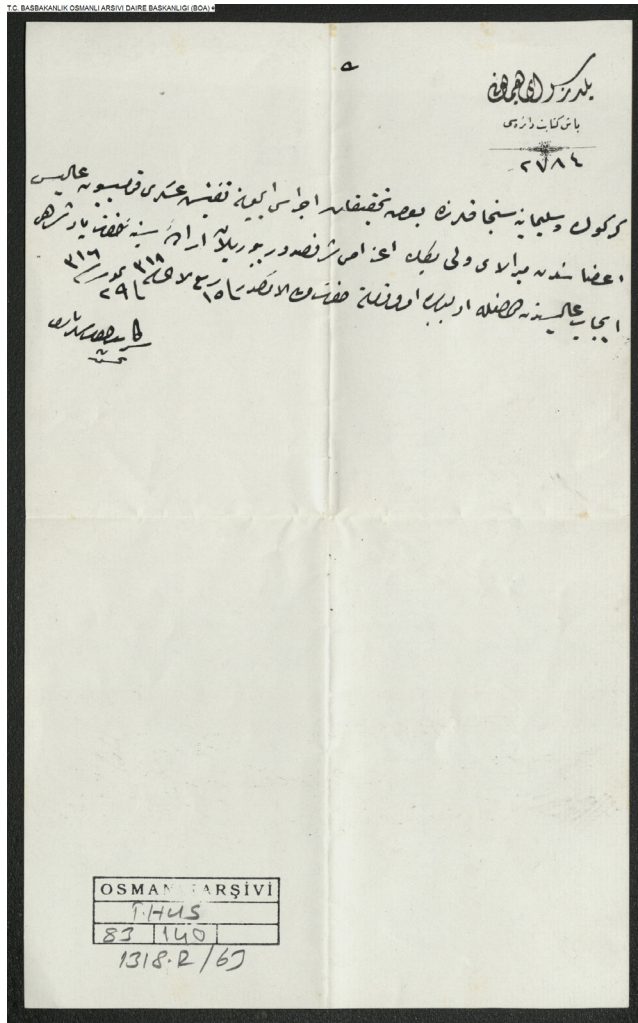 T.C. BASBAKANLIK OSMANLI ARSIVI DAIRE BASKANLIGI (BOA)
٥
يلديز سراى همايونى
باش كتابت دائره‌سى
٢٧٨٤
كركوك و سليمانيه سنجاقلرنده بعض تحقيقات اجراسى ايچون تفتيش عسكرى قوميسيون عاليسى
اعضاسندن ميرالاى ولى بك اعزامى شرفصدور بيوريلان اراده سنيه حضرت پادشاهى
ايجاب عاليسندن اولمغله اولبابده امر و فرمان حضرت من له الامركدر فى ١٥ ربيع الآخر ٣١٨ و فى ٢٩ تموز ٣١٦
سركاتب حضرت شهريارى
تحسين
OSMANLI ARŞİVİ
İ.HUS
83 140
1318.R/63